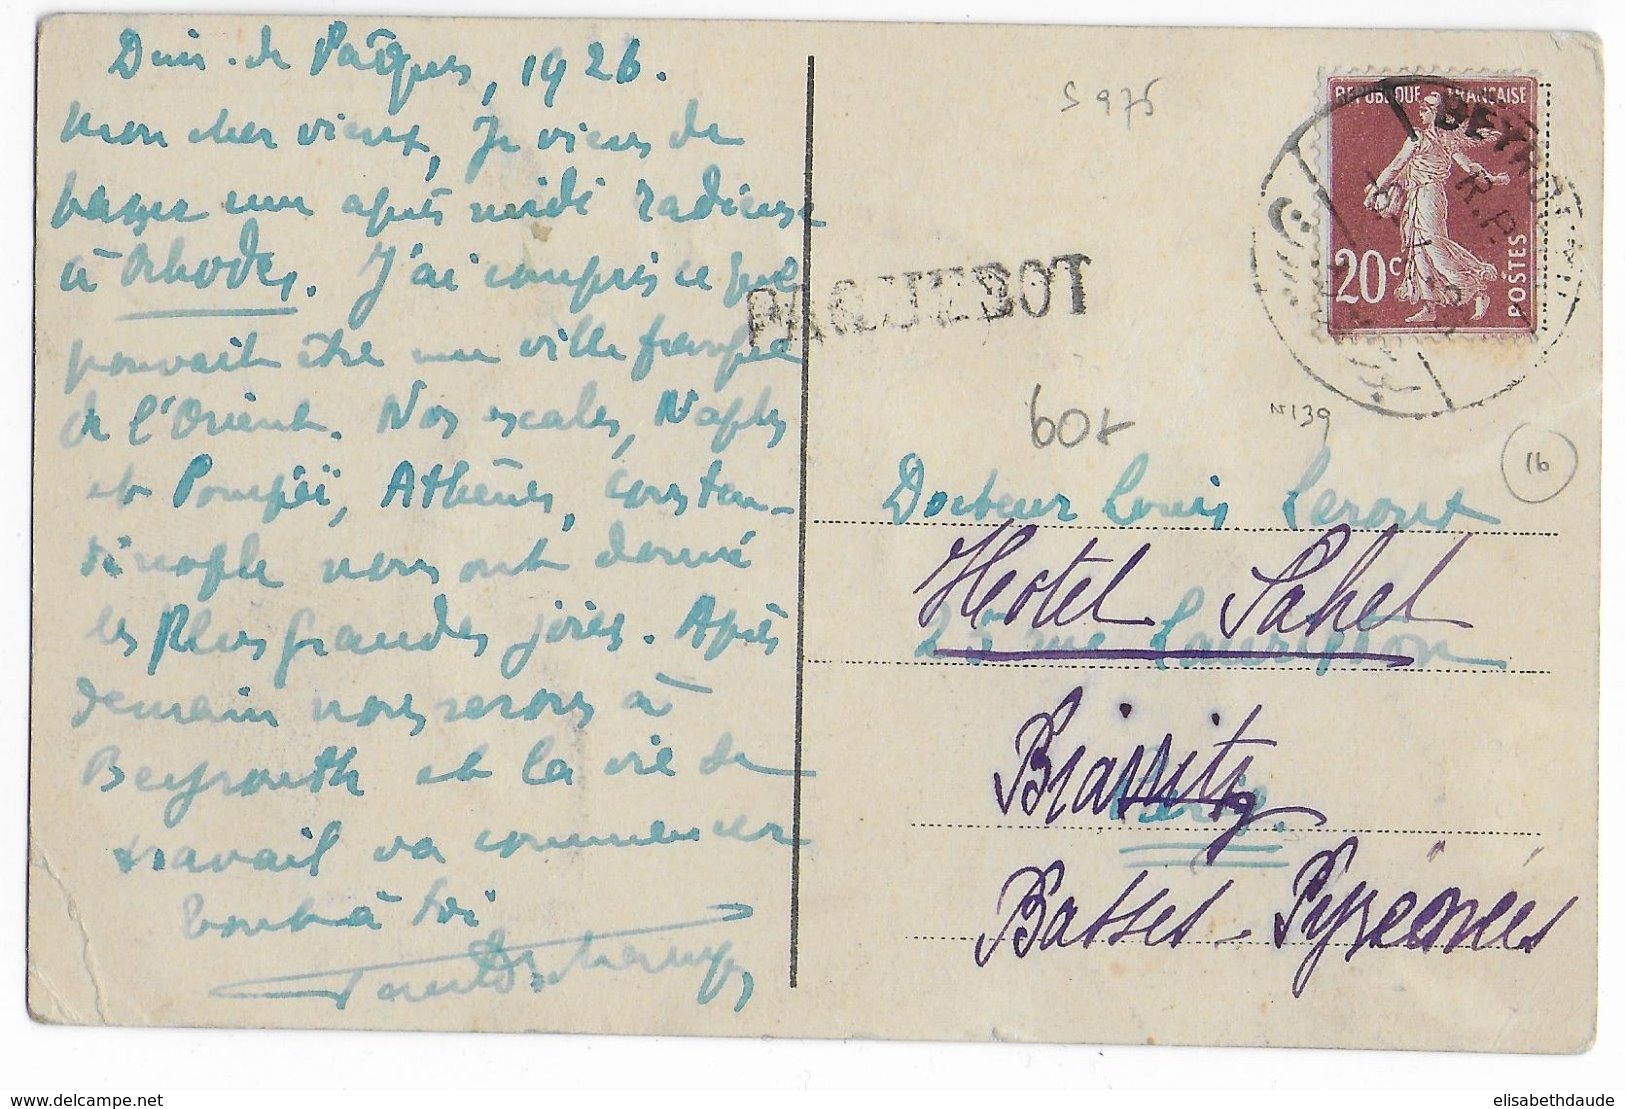 Dim. de Pâques, 1926.
Mon cher vieux, Je viens de
passer une après midi radieuse
à Rhodes. J'ai compris ce que
pouvait être une ville franque
de l'Orient. Nos escales, Naples
et Pompéï, Athènes, Constan-
tinople nous ont donné
les plus grandes joies. Après
demain nous serons à
Beyrouth et la vie de
travail va commencer
tout à toi
Paul Deschamps
S 975
REPUBLIQUE FRANÇAISE
20c
POSTES
BEYROUTH
R.P.
PAQUEBOT
60+
N139
16
Docteur Louis Leroux
Hotel Sahel
25 rue Lauriston
Biarritz
Paris.
Basses-Pyrénées
www.delcampe.net
elisabethdaude